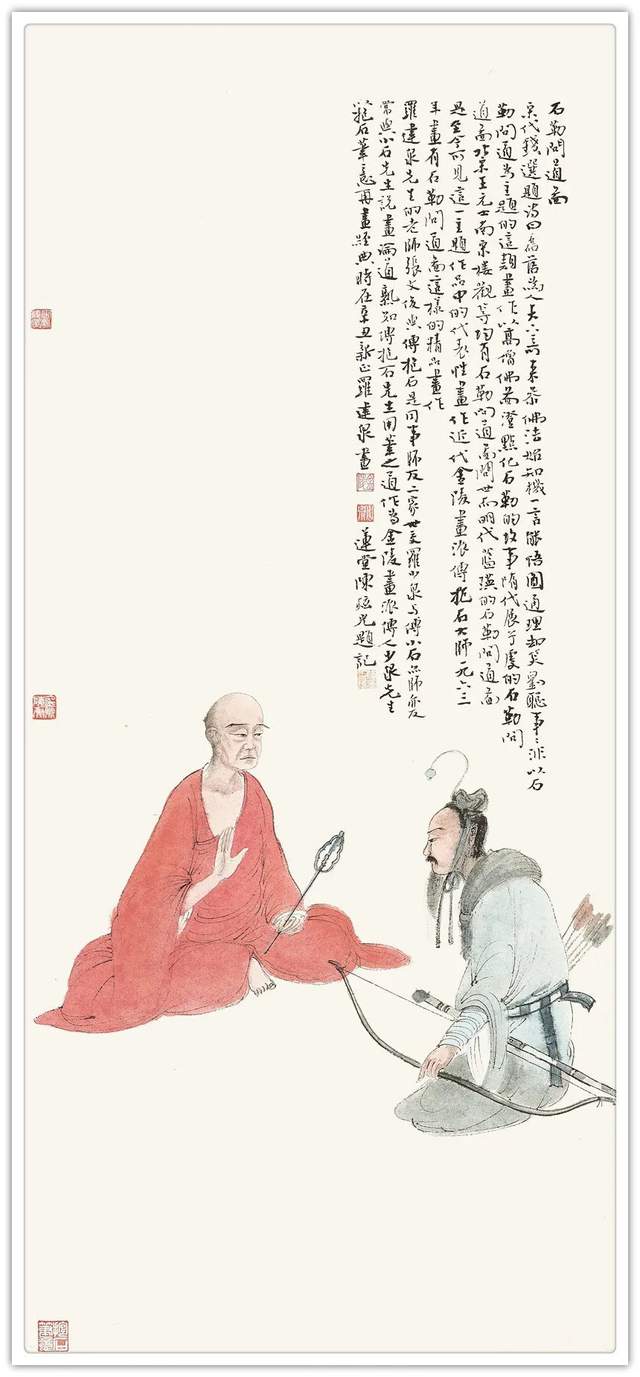 石勒問道圖
宋代錢選題詩曰 來恭佛法始知機一言能悟圓通理却笑劉聰事事非以石
勒問道為主題的這類畫作以高僧佛圖澄點化石勒的故事隋代展子虔的石勒問
道圖北宋王元士南宋樓觀等均有石勒問道圖問世而明代藍瑛的石勒問道圖
是至今可見這一主題作品中的代表性畫作近代金陵畫派傅抱石大師一九六三
年畫有石勒問道圖這樣的精品畫作
羅建泉先生的老師張文俊與傅抱石是同事師友二家世交羅少泉与傅小石亦師亦友
常與小石先生說畫論道熟知傅抱石先生用筆之道作為金陵畫派傳人少泉先生
抱石筆意再畫經典時在辛丑新正羅建泉畫
蓮堂陳 光題記